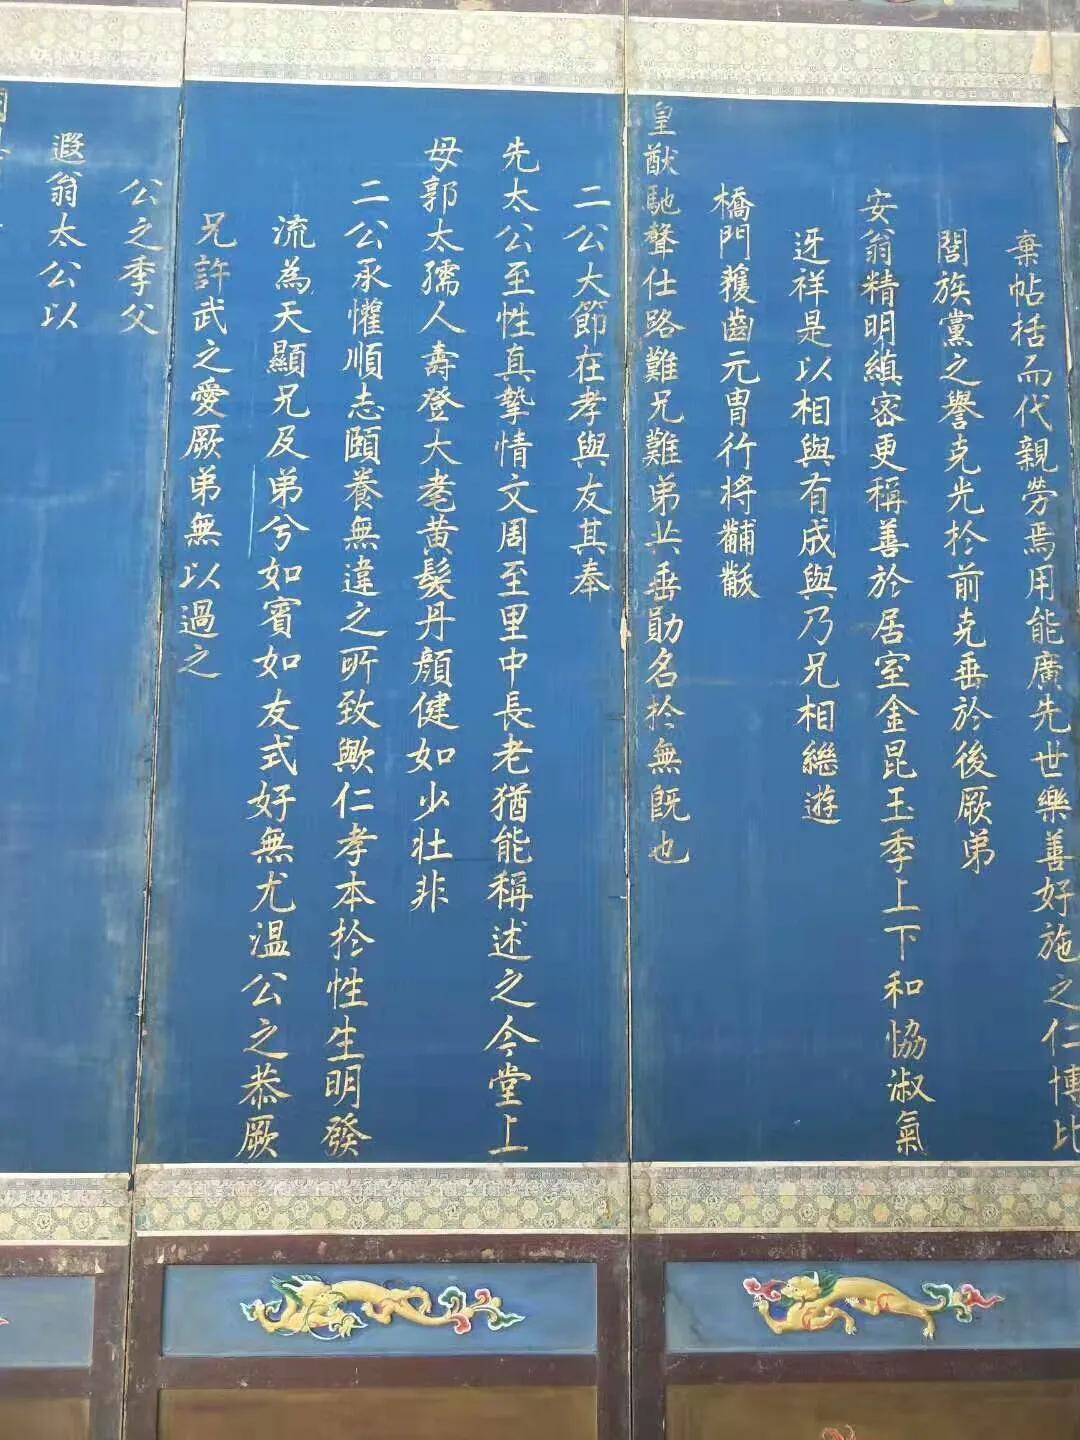 棄帖括而代親勞焉用能廣先世樂善好施之仁博比
閭族黨之譽克光於前克垂於後厥弟
安翁精明縝密更稱善於居室金昆玉季上下和協淑氣
迓祥是以相與有成與乃兄相繼遊
橋門蒦齒元胄行將黼黻
皇猷馳聲仕路難兄難弟共垂勛名於無既也
二公大節在孝與友其奉
先太公至性真摯情文周至里中長老猶能稱述之今堂上
母郭太孺人壽登大耄黃髮丹顏健如少壯非
二公承懽順志頤養無違之所致歟仁孝本於性生明發
流為天顯兄及弟兮如賓如友式好無尤溫公之恭厥
兄許武之愛厥弟無以過之
公之季父
遐翁太公以